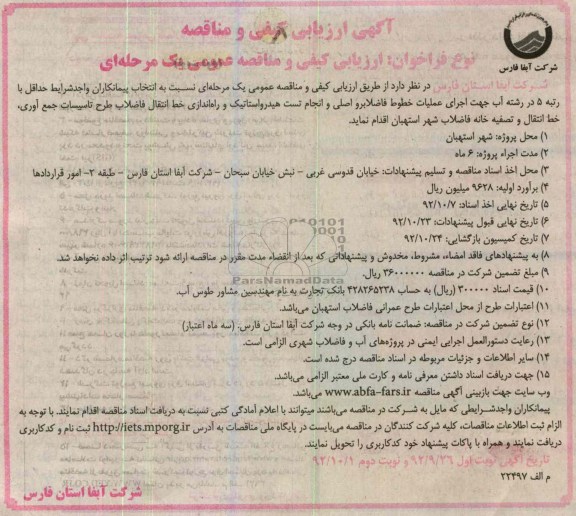 آگهی ارزیابی کیفی و مناقصه
نوع فراخوان: ارزیابی کیفی و مناقصه عمومی یک مرحله‌ای
شرکت آبفا فارس
شرکت آبفا استان فارس در نظر دارد از طریق ارزیابی کیفی و مناقصه عمومی یک مرحله‌ای نسبت به انتخاب پیمانکاران واجدشرایط حداقل با
رتبه ۵ در رشته آب جهت اجرای عملیات خطوط فاضلابرو اصلی و انجام تست هیدرواستاتیک و راه‌اندازی خط انتقال فاضلاب طرح تاسیسات جمع آوری،
خط انتقال و تصفیه خانه فاضلاب شهر استهبان اقدام نماید.
۱) محل پروژه: شهر استهبان
۲) مدت اجراء پروژه: ۶ ماه
۳) محل اخذ اسناد مناقصه و تسلیم پیشنهادات: خیابان قدوسی غربی – نبش خیابان سبحان – شرکت آبفا استان فارس – طبقه ۲– امور قراردادها
۴) برآورد اولیه: ۹۶۲۸ میلیون ریال
۵) تاریخ نهایی اخذ اسناد: ۹۲/۱۰/۷
۶) تاریخ نهایی قبول پیشنهادات: ۹۲/۱۰/۲۳
۷) تاریخ کمیسیون بازگشایی: ۹۲/۱۰/۲۴
۸) به پیشنهادهای فاقد امضاء، مشروط، مخدوش و پیشنهاداتی که بعد از انقضاء مدت مقرر در مناقصه ارائه شود ترتیب اثر داده نخواهد شد.
ParsNamadData
۹) مبلغ تضمین شرکت در مناقصه ۳۶۰۰۰۰۰۰۰ ریال.
۱۰) قیمت اسناد ۳۰۰۰۰۰ (ریال) به حساب ۴۲۸۲۶۵۲۳۸ بانک تجارت به نام مهندسین مشاور طوس آب.
۱۱) اعتبارات طرح از محل اعتبارات طرح عمرانی فاضلاب استهبان می‌باشد.
۱۲) نوع تضمین شرکت در مناقصه: ضمانت نامه بانکی در وجه شرکت آبفا استان فارس. (سه ماه اعتبار)
۱۳) رعایت دستورالعمل اجرایی ایمنی در پروژه‌های آب و فاضلاب شهری الزامی است.
۱۴) سایر اطلاعات و جزئیات مربوطه در اسناد مناقصه درج شده است.
۱۵) جهت دریافت اسناد داشتن معرفی نامه و کارت ملی معتبر الزامی می‌باشد.
وب سایت جهت بازبینی آگهی مناقصه www.abfa-fars.ir می‌باشد.
پیمانکاران واجدشرایطی که مایل به شرکت در مناقصه می‌باشند میتوانند با اعلام آمادگی کتبی نسبت به دریافت اسناد مناقصه اقدام نمایند. با توجه به
الزام ثبت اطلاعات مناقصات، کلیه شرکت کنندگان در مناقصه می‌بایست در پایگاه ملی مناقصات به آدرس http://iets.mporg.ir ثبت نام و کدکاربری
دریافت نمایند و همراه با پاکات پیشنهاد خود کدکاربری را تحویل نمایند.
تاریخ آگهی نوبت اول ۹۲/۹/۲۶ و نوبت دوم ۹۲/۱۰/۱
م الف ۲۲۴۹۷
شرکت آبفا استان فارس